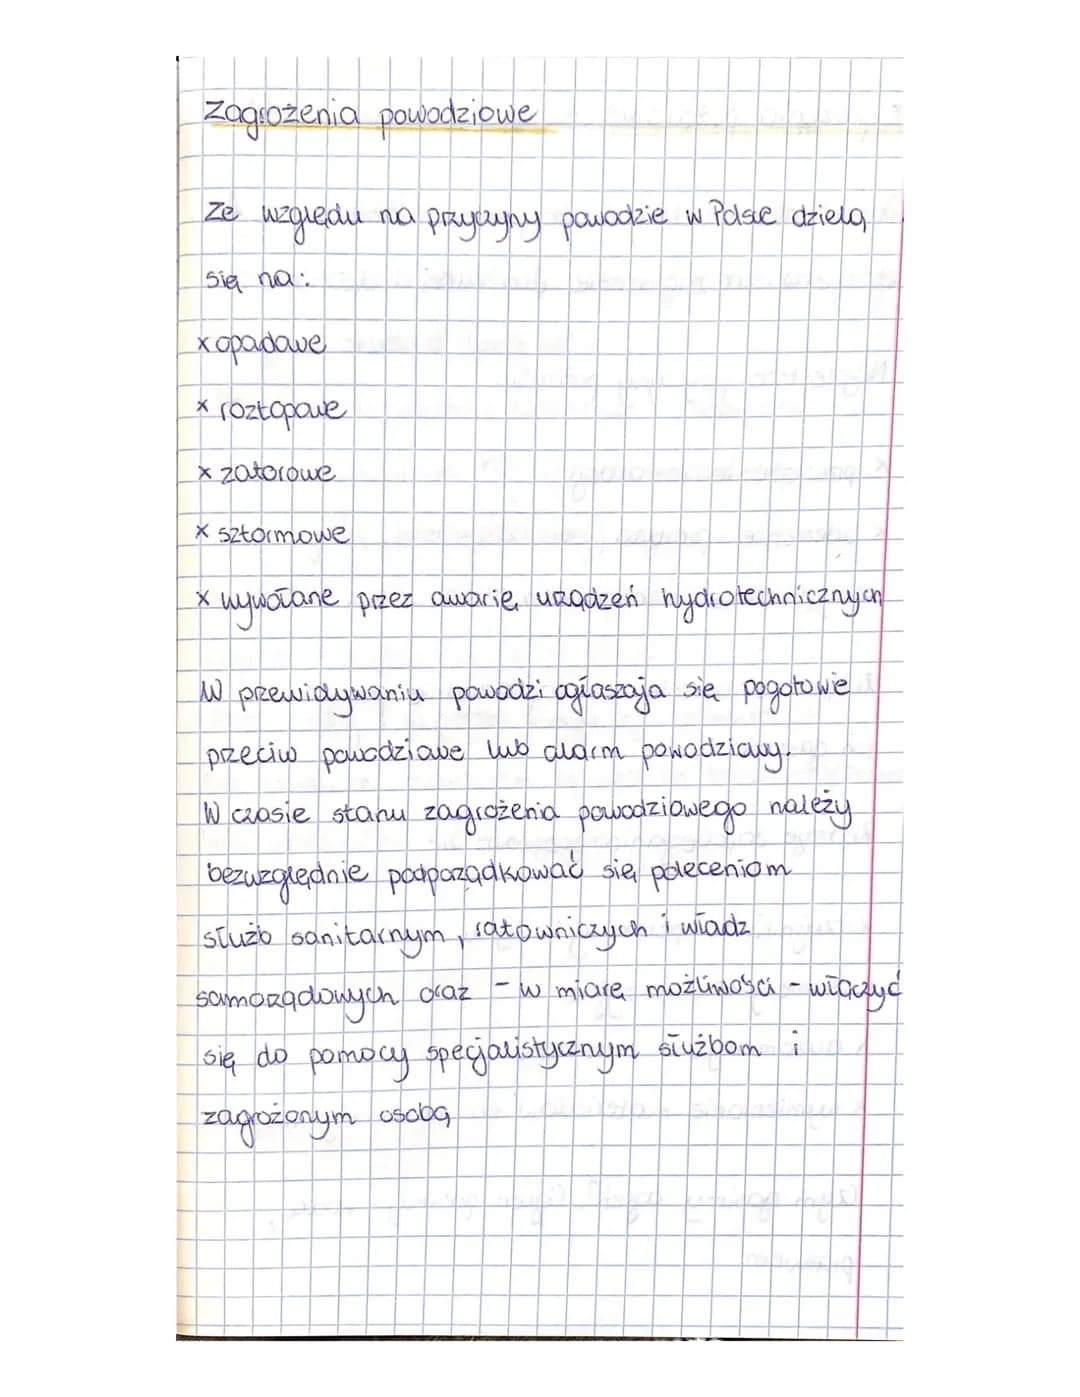 Zagrożenia powodziowe
Ze względu na przyczyny powodzie w Polsce dzielą
się na:
x opadowe
x roztopowe
x zatorowe
x sztormowe
x wywołane przez awarię urządzeń hydrotechnicznych
W przewidywaniu powodzi ogłaszaja się pogotowie
przeciw powodziowe lub alarm powodziowy.
W czasie stanu zagrożenia powodziowego należy
bezwzględnie podporządkować się poleceniom
służb sanitarnym, ratowniczych i władz
samorządowych oraz - w miarę możliwości - włączyć
się do pomocy specjalistycznym służbom i
zagrożonym osobą